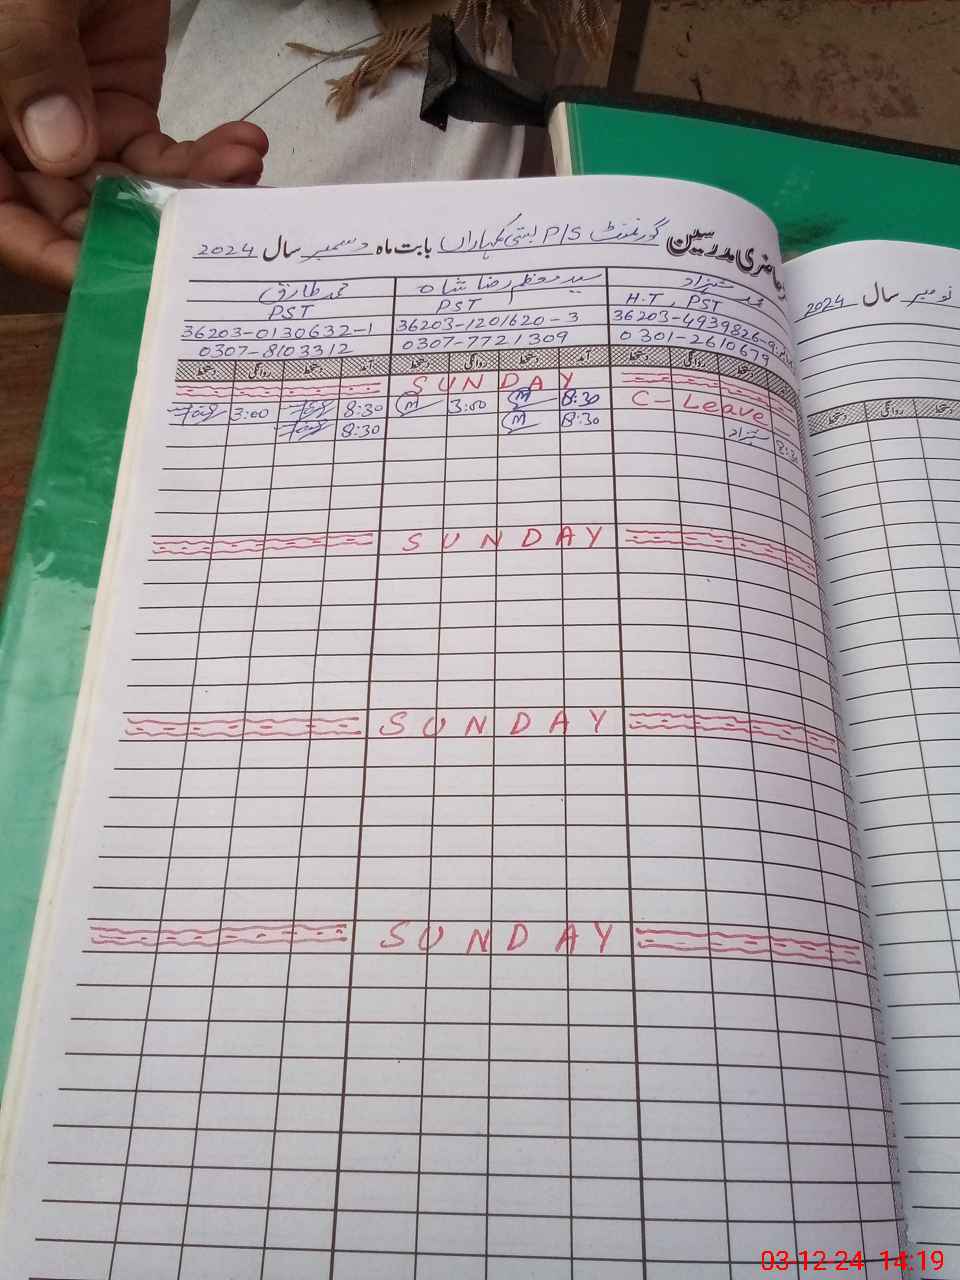 حاضری مدرسین گورنمنٹ P/S بستی کمہاراں بابت ماہ دسمبر سال 2024
محمد شہزاد سید معظم رضا شاہ محمد طارق
H.T, PST PST PST
36203-4939826-9 36203-1201620-3 36203-0130632-1
0301-2610679 0307-7721309 0307-8103312
آمد دستخط روانگی دستخط آمد دستخط روانگی دستخط آمد دستخط روانگی دستخط
SUNDAY
C-Leave 8:30 M 3:00 M 8:30 3:00
شہزاد 8:30 M 8:30
SUNDAY
SUNDAY
SUNDAY
نومبر سال 2024
دستخط روانگی دستخط
03-12-24 14:19